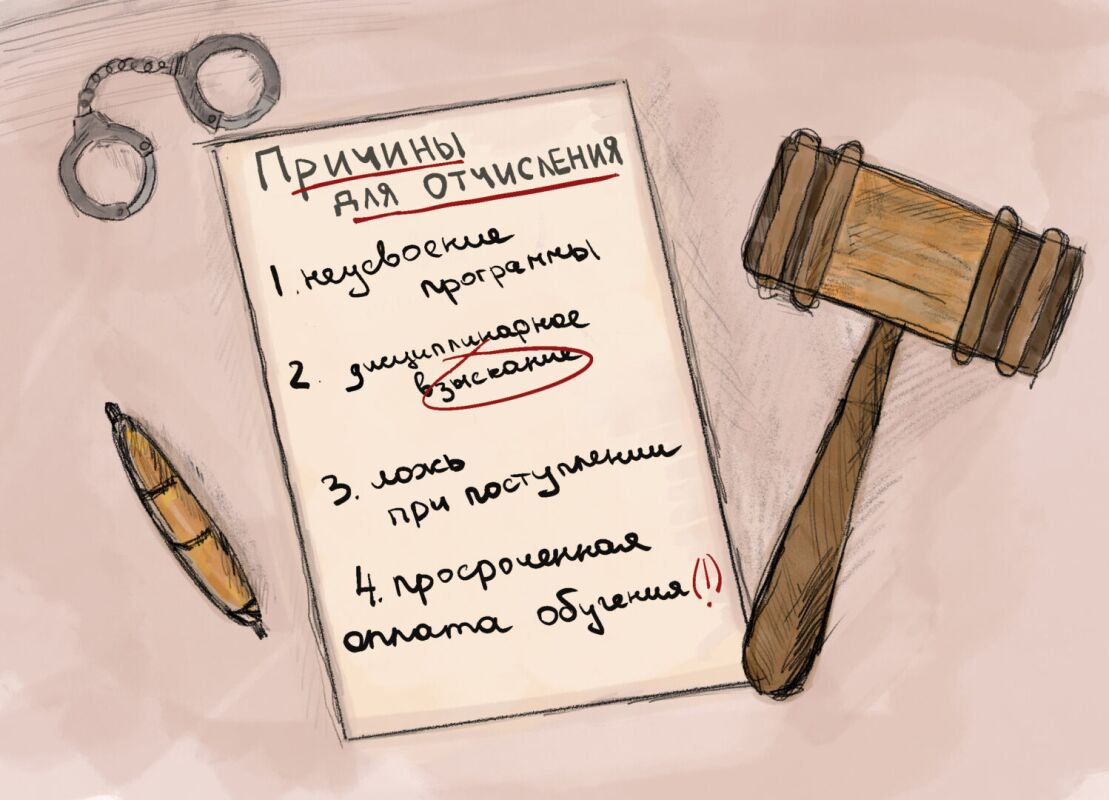 Причины
для отчисления
1. неусвоение
программы
2. дисциплинарное
взыскание
3. ложь
при поступлении
4. просроченная
оплата обучения(!)